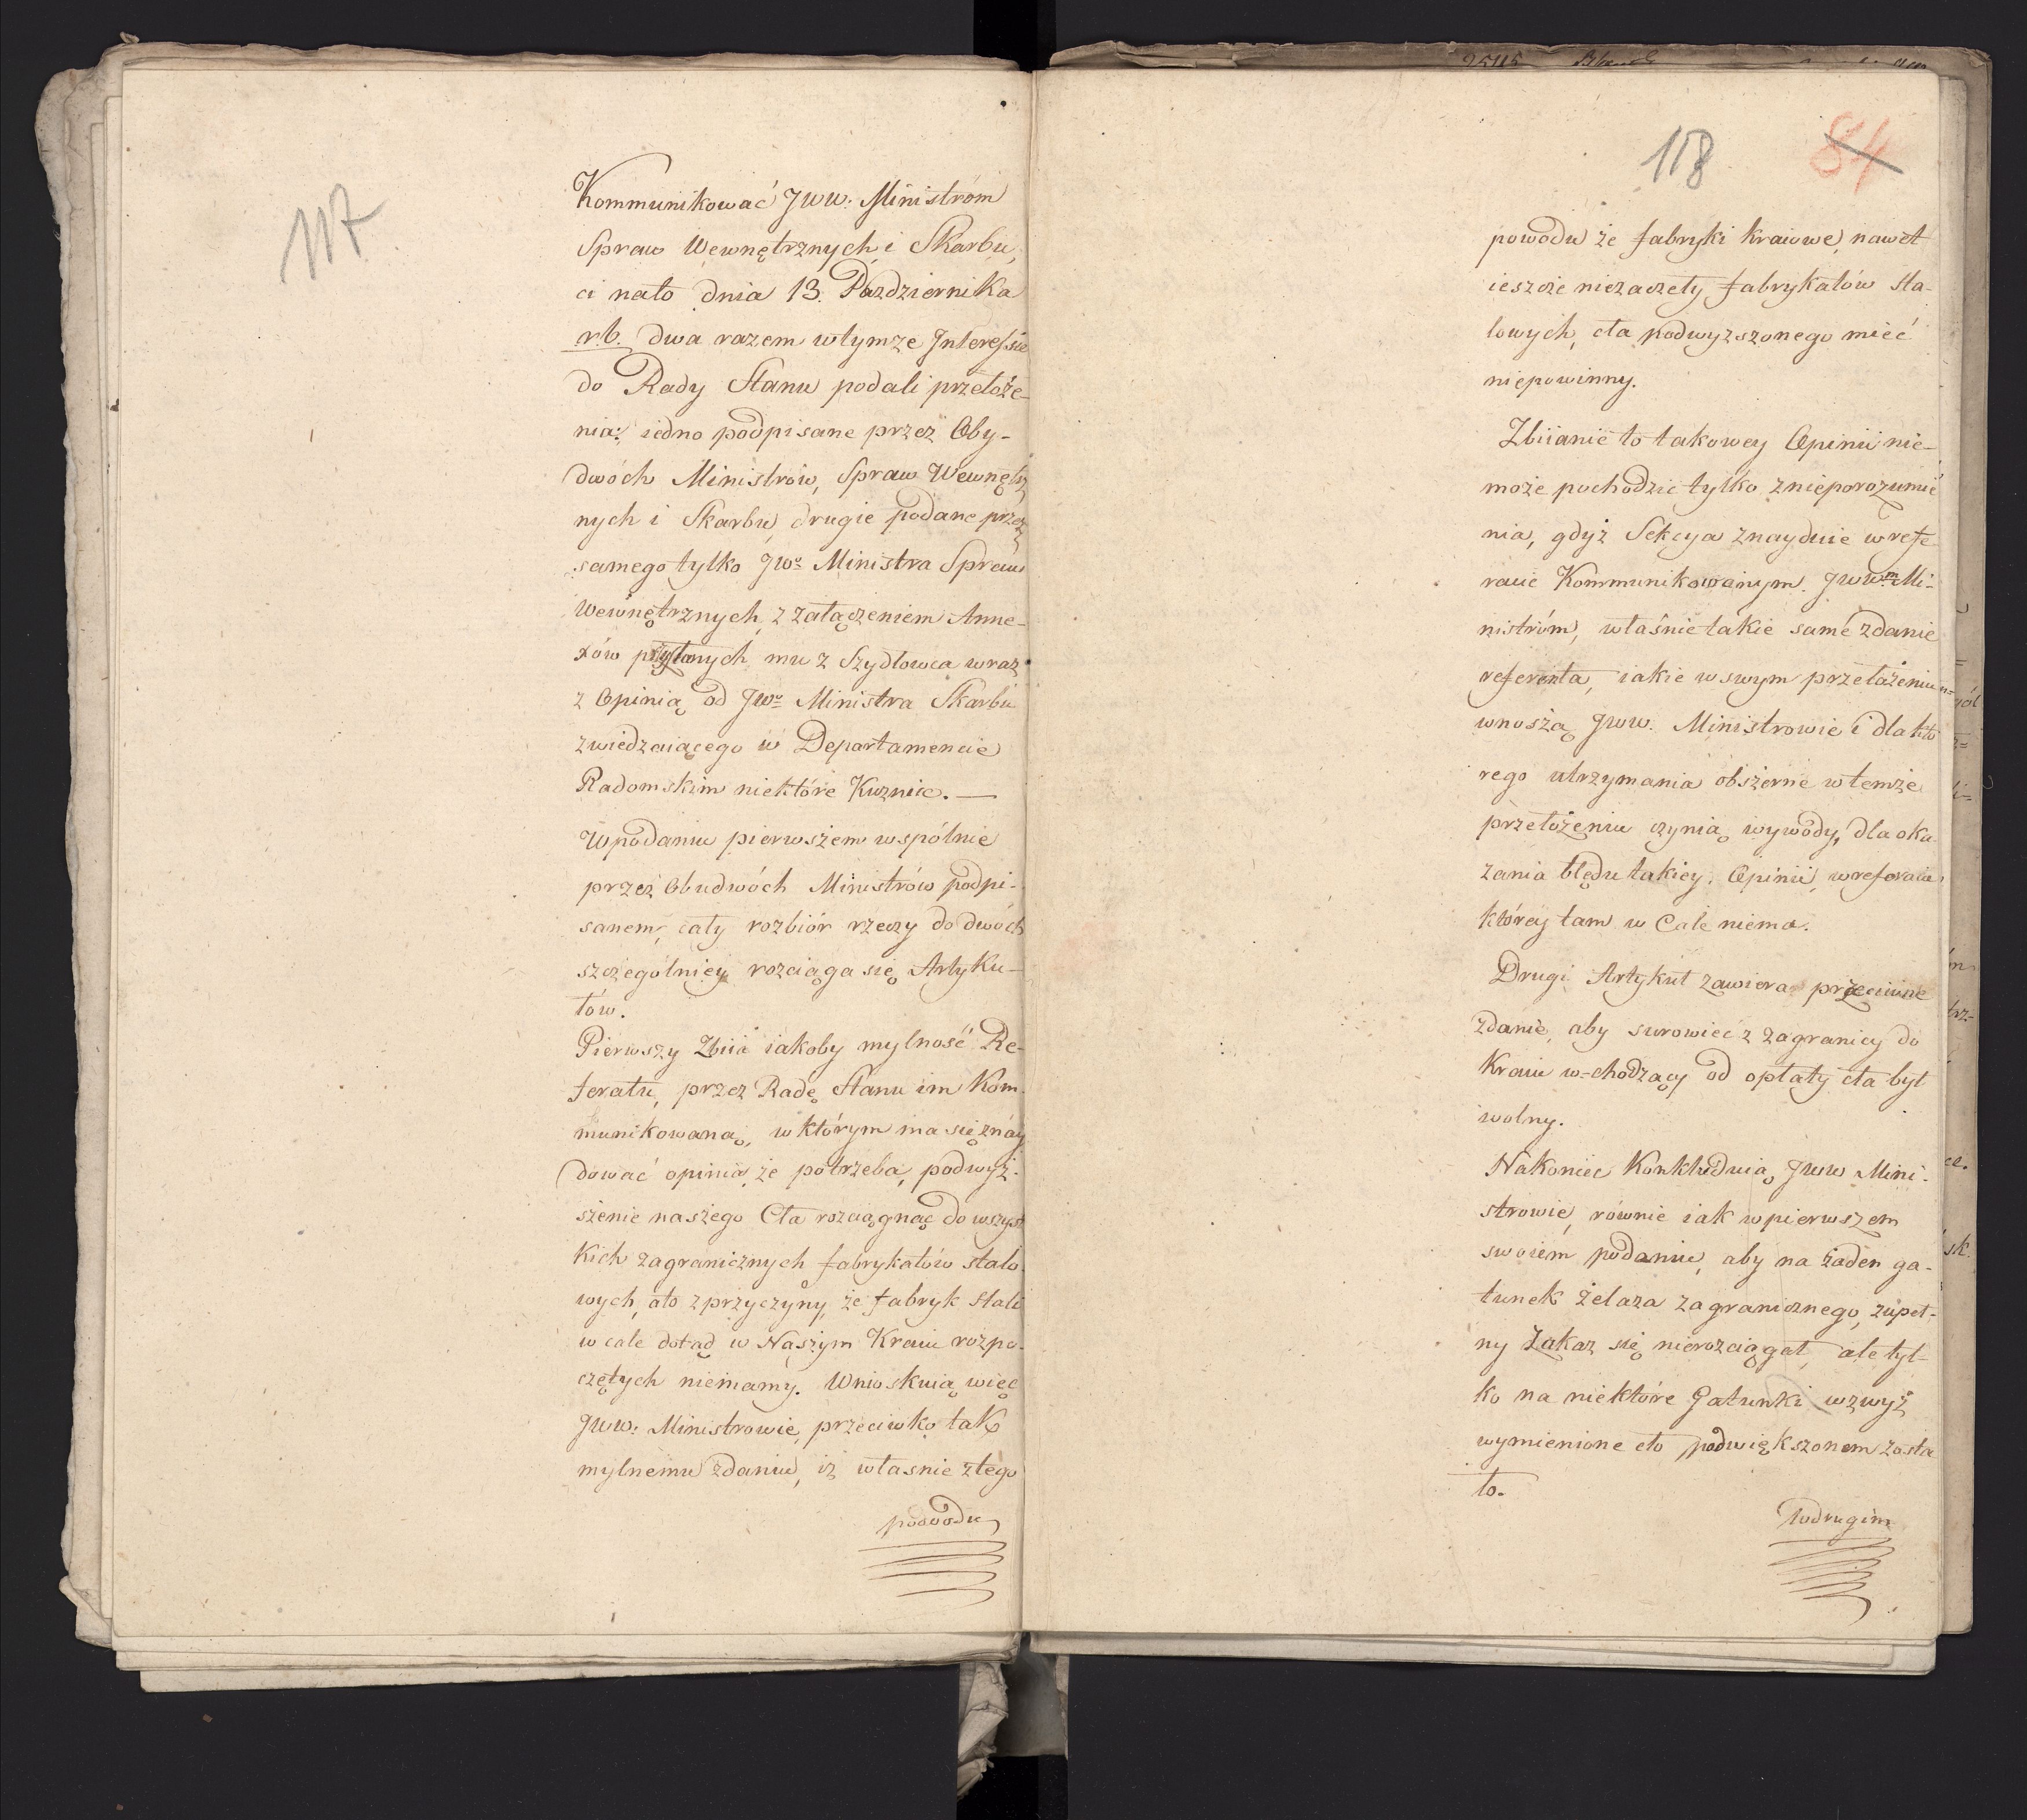 117
Kommunikować JWW: Ministróm
Spraw Wewnętrznych i Skarbu,
ci nato dnia 13. Pazdziernika
r.b. dwa razem wtymże Interessie
do Rady Stanu podali przełoże-
nia: iedno podpisane przez Oby-
dwóch Ministrów, Spraw Wewnętrz
nych i Skarbu, drugie podane przez
samego tylko JWo Ministra Spraw
Wewnętrznych, z załączeniem Anne-
xów mu z Szydłowca wraz
z Opinią od JWo Ministra Skarbu
zwiedzaiącego w Departamencie
Radomskim niektóre Kuznice. —
W podaniu pierwszem wspólnie
przez Obudwóch Ministrów podpi-
sanem, cały rozbiór rzeczy do dwóch
szczególniey rozciąga się Artyku-
łów.
Pierwszy Zbiia iakoby mylność Re-
feratu, przez Radę Stanu im Kom-
munikowaną, w którym ma się znay
dować opinia, że potrzeba, podwyż-
szenie naszego Cła rozciągnąć do wszyst
kich zagranicznych fabrykatów stalo-
wych, ato z przyczyny, że fabryk stali
w cale dotąd w Naszym Kraiu rozpo-
czętych niemamy. Wnioskuią więc
JWW: Ministrowie, przeciwko tak
mylnemu zdaniu, iż własnie z tego
powodu
118
84
powodu że fabryki kraiowe, nawet
ieszcze niezaczęły fabrykatów sta-
lowych, cła podwyzszonego mieć
niepowinny.
Zbiianie to takowey Opinii nie-
może pochodzic tylko z nieporozumie
nia, gdyż Sekcya znayduie w refe-
racie Kommunikowanym JWWm Mi-
nistróm, właśnie takie same zdanie
referenta, iakie w swym przełożeniu
wnoszą JWW. Ministrowie i dla któ
rego utrzymania obszerne w temże
przełożeniu czynią wywody, dla oka
zania błędu takiey Opinii, w referacie
którey tam w Cale niema.
Drugi Artykuł zawiera przeciwne
zdanie, aby surowiec z zagranicy do
Kraiu w-chodzący od opłaty cła był
wolny.
Nakoniec Konkluduią JWW Mini-
strowie, równie iak w pierwszem
swoiem podaniu, aby na żaden ga-
tunek żelaza zagranicznego, zupeł-
ny Zakaz się nierozciągał, ale tyl-
ko na niektóre Gatunki wzwyż
wymienione cło podwiększonem zosta
ło.
W drugim